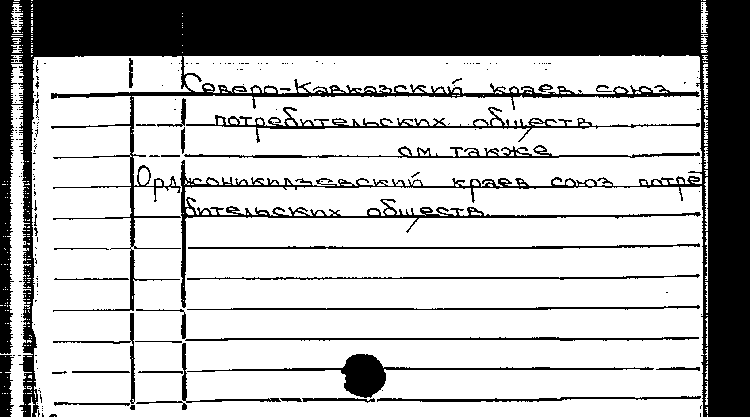 Северо-Кавказский краев. союз
потребительских обществ
см. также
Орджоникидзевский краев. союз потре
бительских обществ.